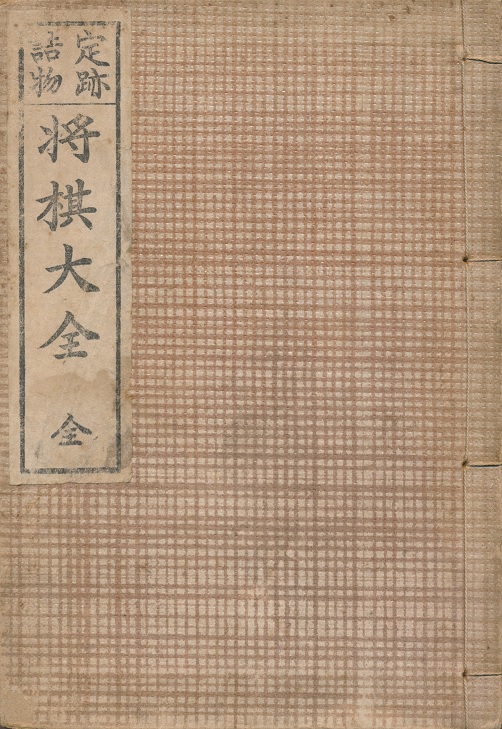 定跡
詰物
将棋大全
全